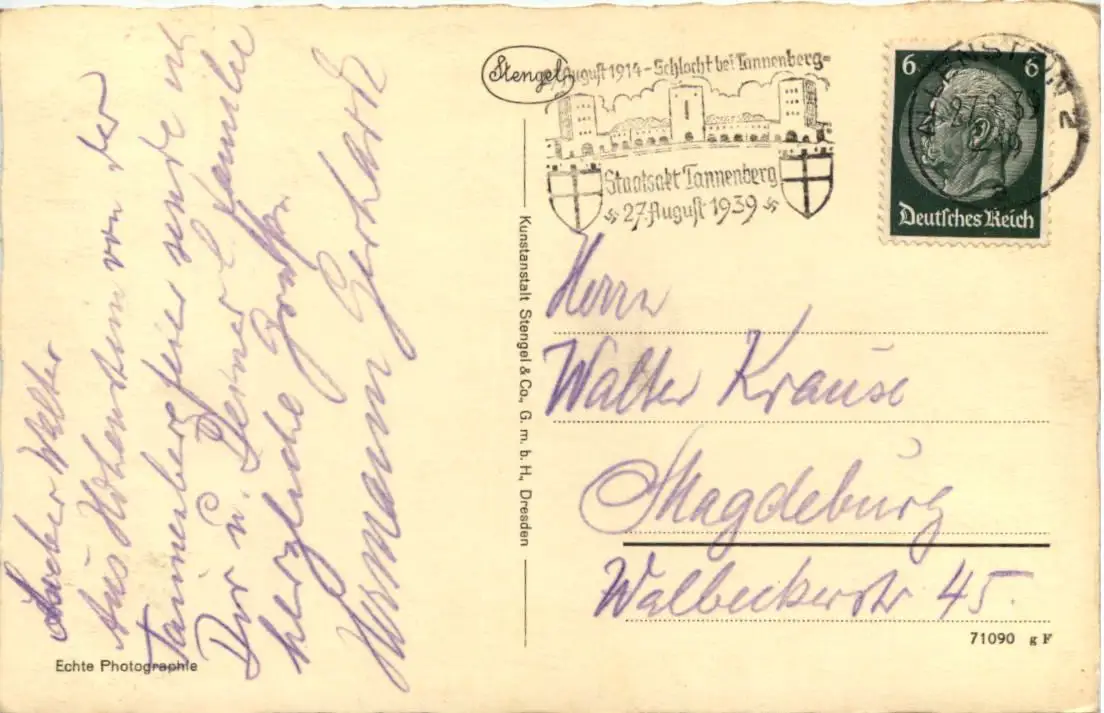 Lieber Walter
Aus Hohenstein von der
Tannenbergfeier sende ich
Dir u. Deiner Familie
herzliche Grüße
Hermann Gerhardt
Echte Photographie
Stengel
Kunstanstalt Stengel & Co., G. m. b. H., Dresden
August 1914 - Schlacht bei Tannenberg -
Staatsakt Tannenberg
27. August 1939
6 6
Deutsches Reich
ALLENSTEIN 2
27.8.39
Herrn
Walter Krause
Magdeburg
Walbeckerstr 45.
71090 g F